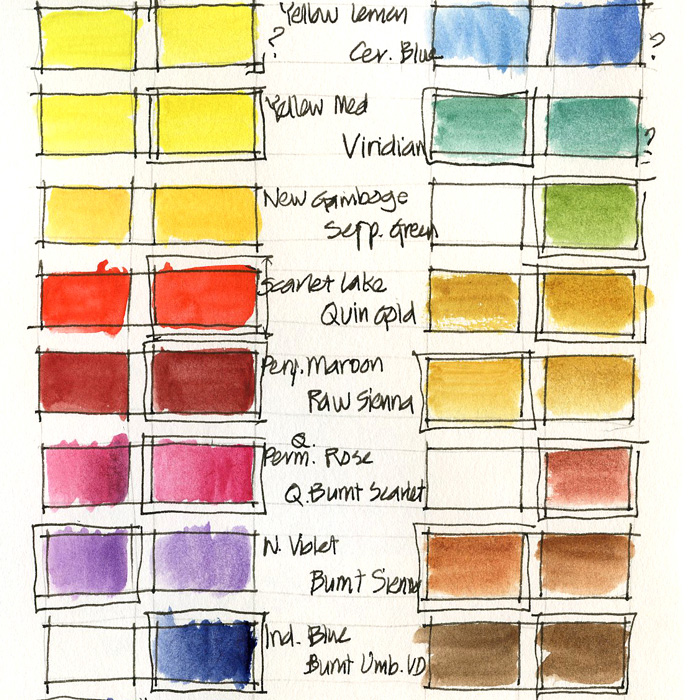 Yellow Lemon
?
Cer. Blue
?
Yellow Med
Viridian
?
New Gamboge
Sapp. Green
Scarlet Lake
Quin Gold
Perj. Maroon
Raw Sienna
Q.
Perm. Rose
Q. Burnt Scarlet
N. Violet
Burnt Sienna
Ind. Blue
Burnt Umb. VD